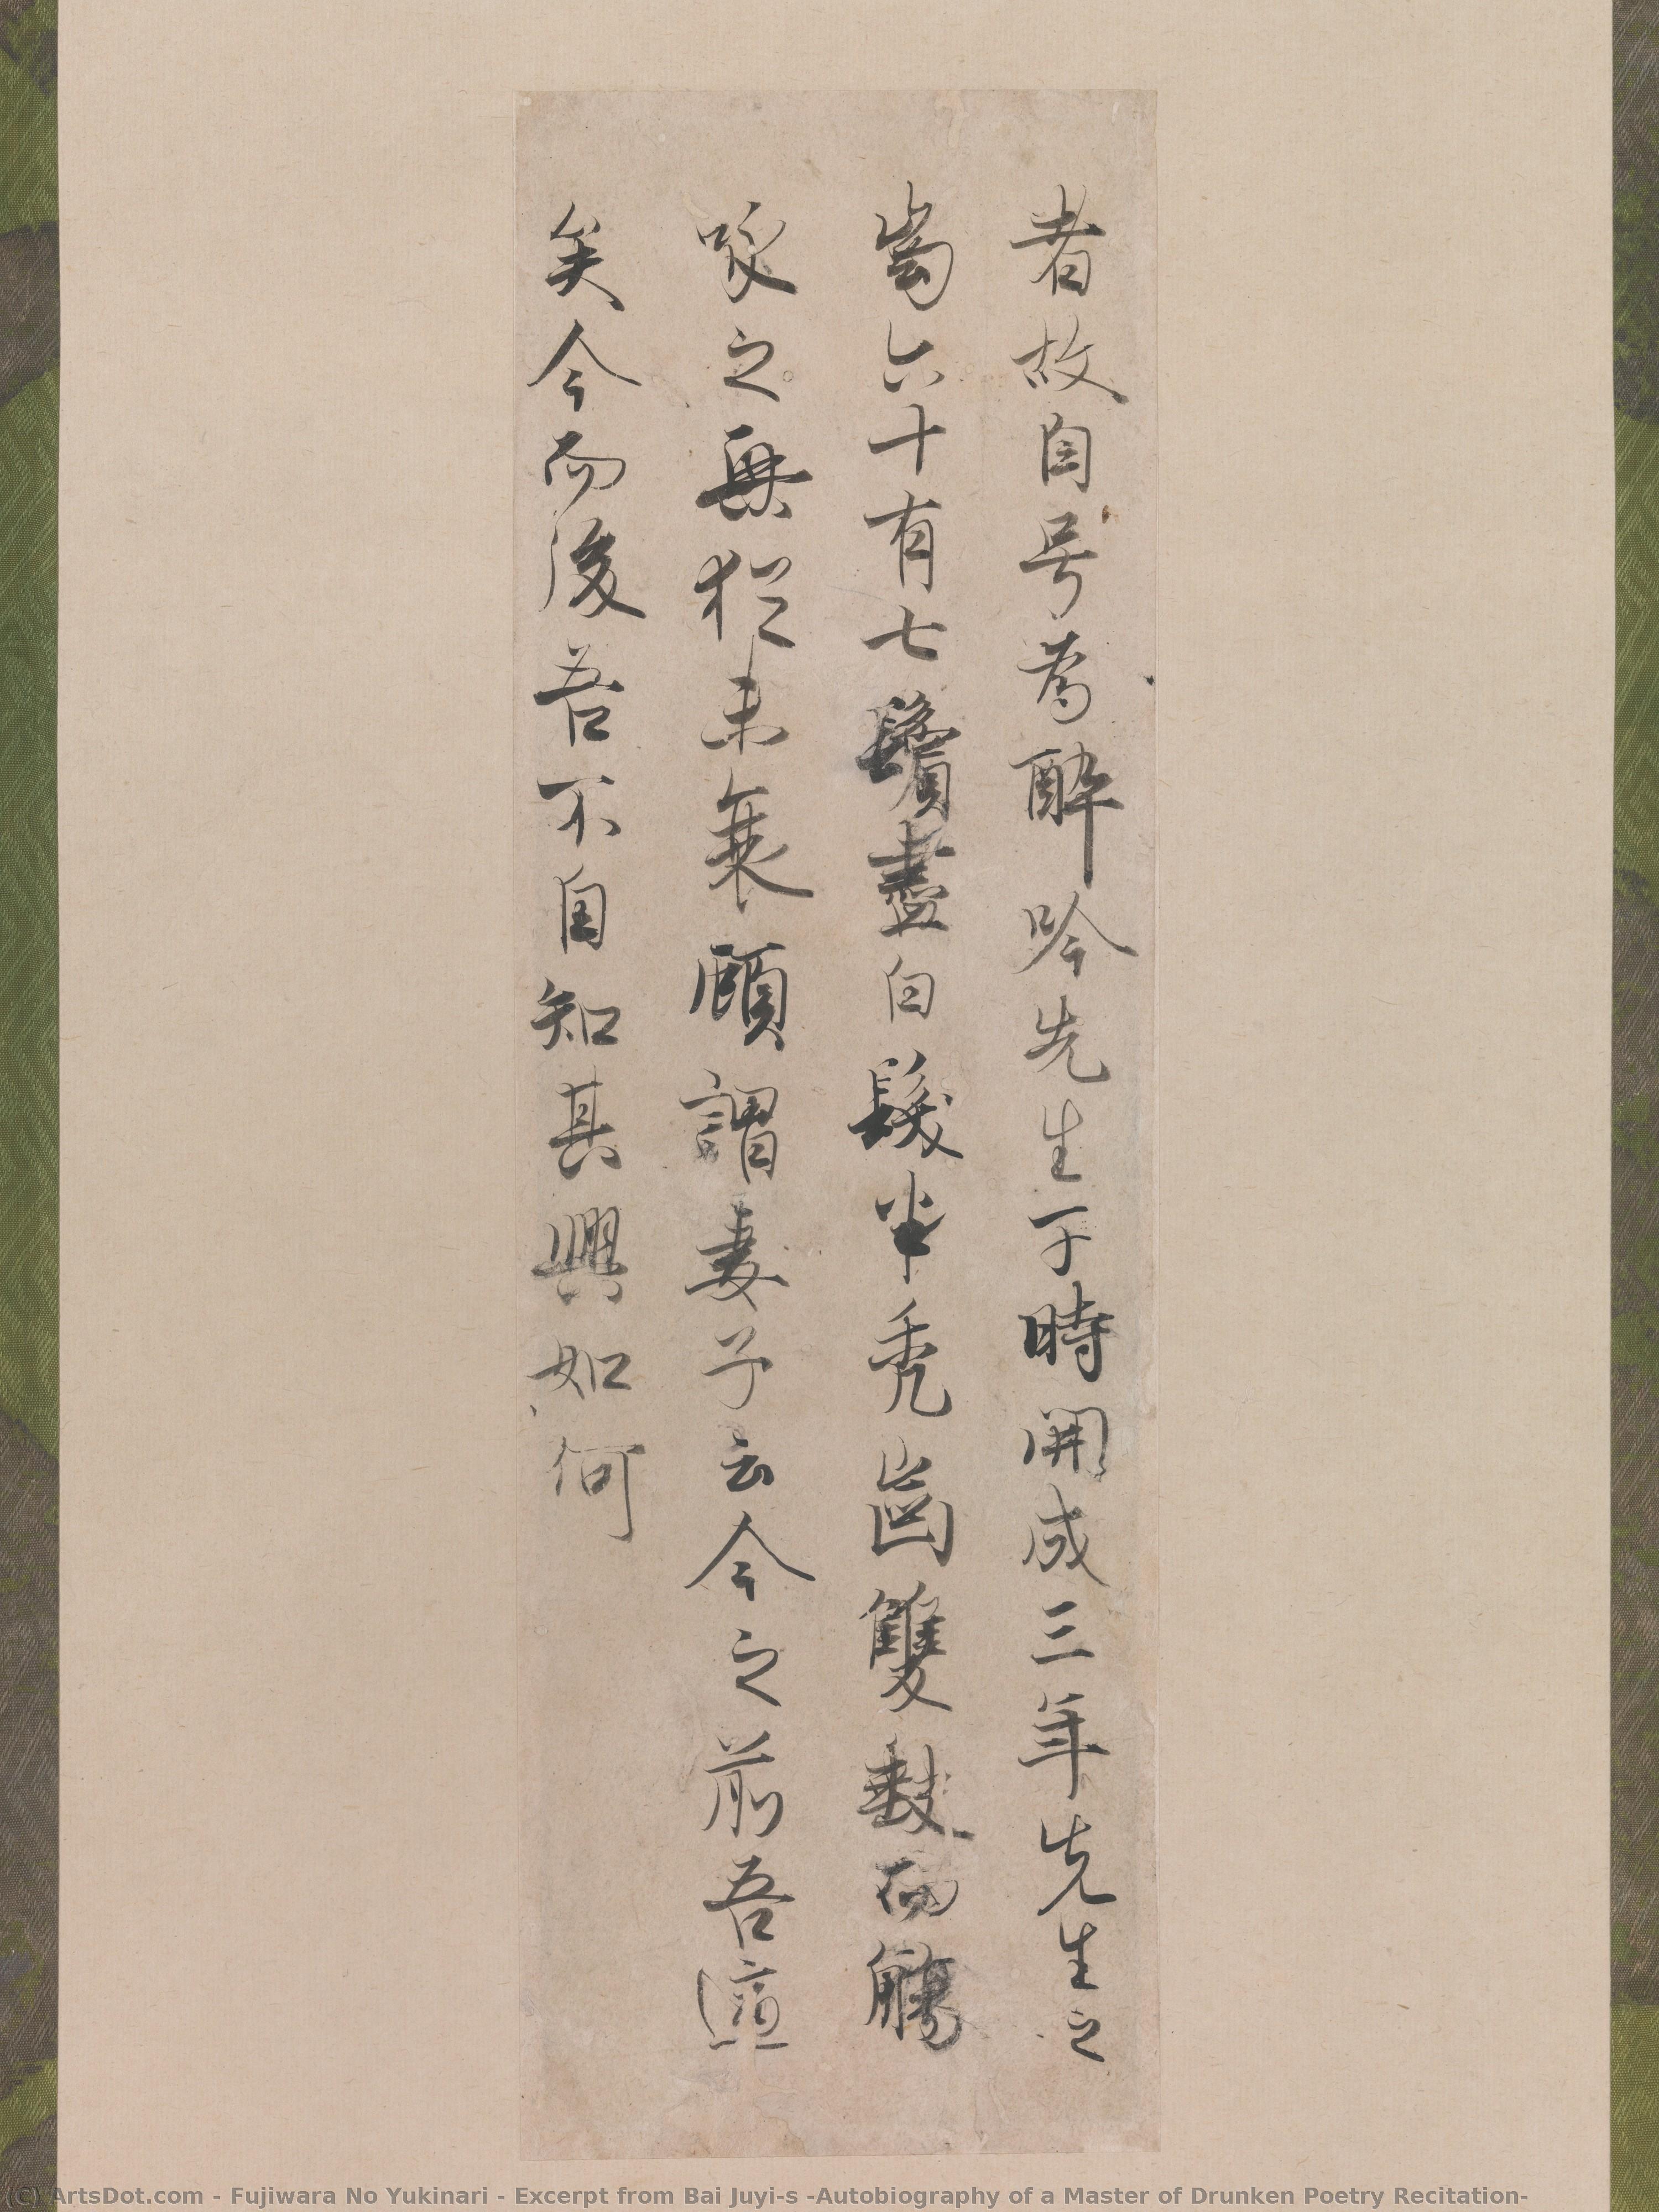 者故自号為酔吟先生于時開成三年先生之
歯六十有七鬢盡白髮半禿齒雙缺而觴
詠之興猶未衰顧謂妻子云今之前吾適
矣今而後吾不自知其興如何
(C) ArtsDot.com - Fujiwara No Yukinari - Excerpt from Bai Juyi-s -Autobiography of a Master of Drunken Poetry Recitation-